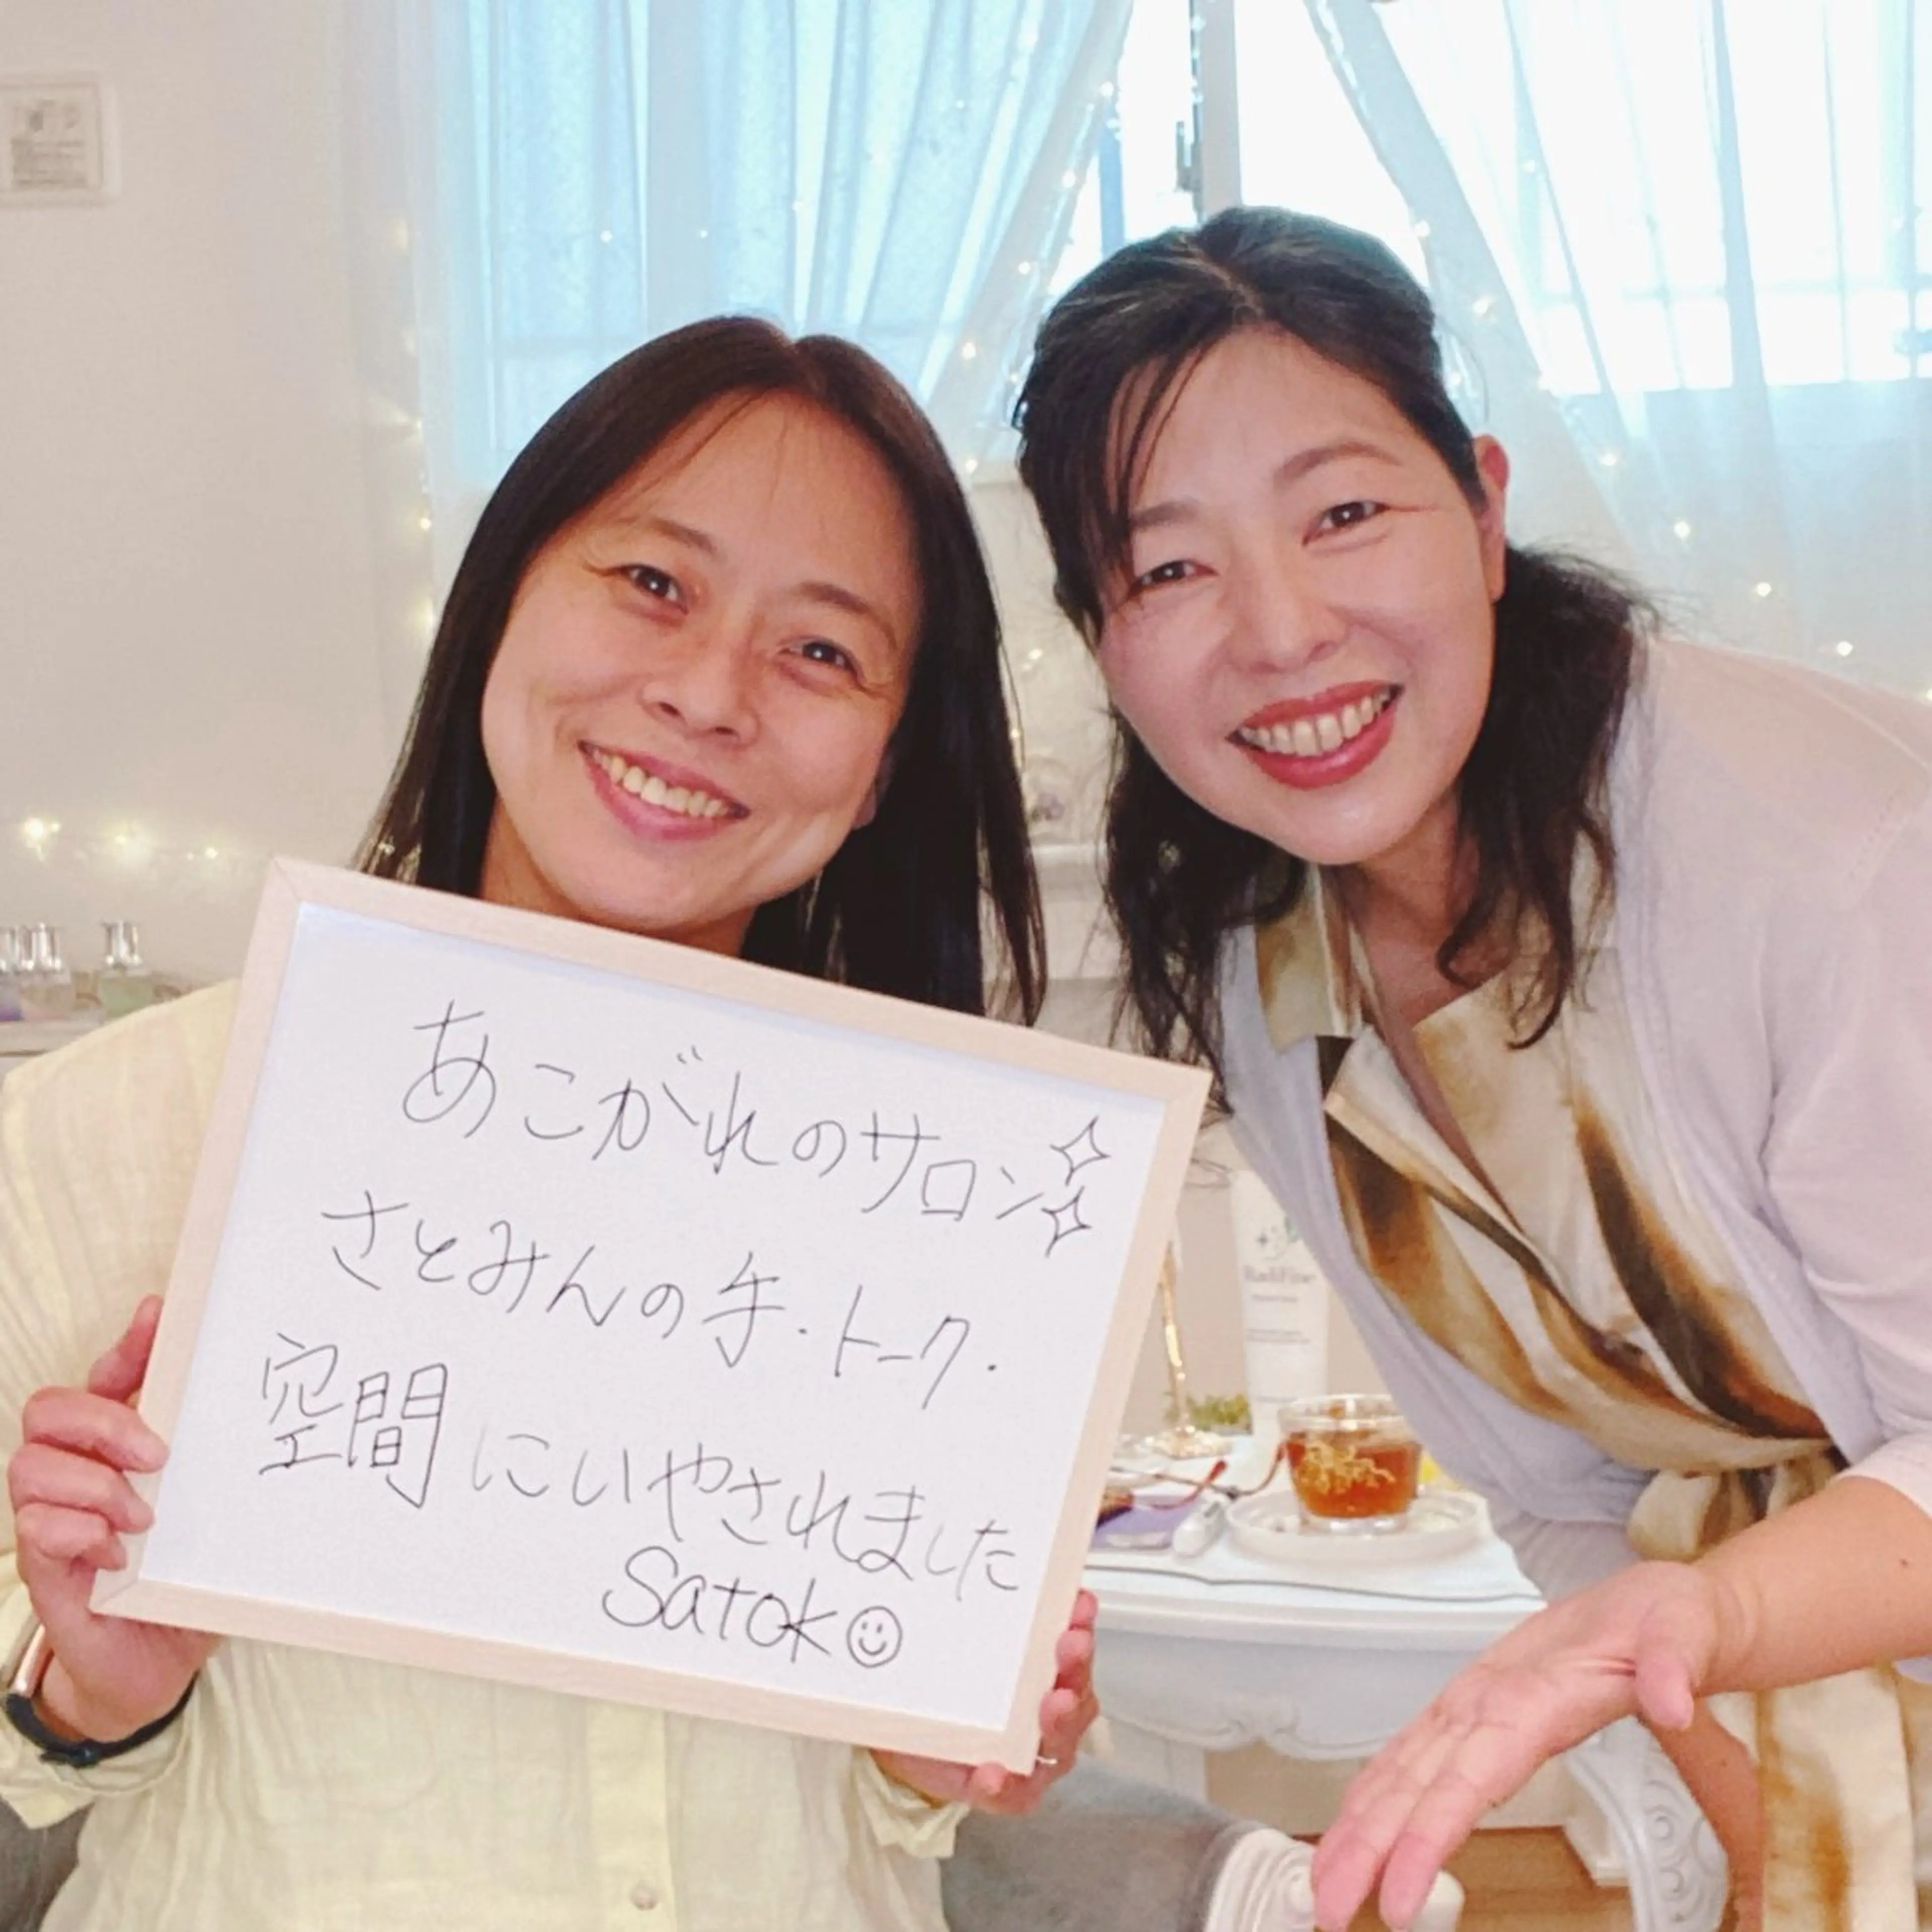 あこがれのサロン
さとみんの手・トーク・
空間にいやされました
Satok☺
RadiFine